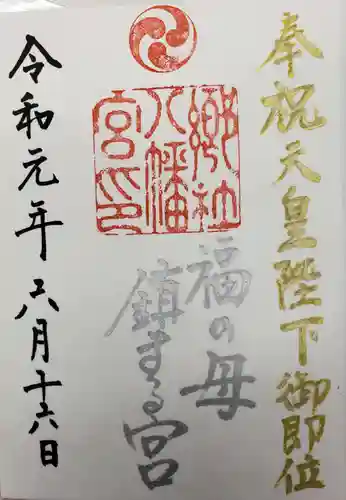 奉祝天皇陛下御即位
福の母
鎮まる宮
郷社
八幡
宮印
令和元年六月十六日